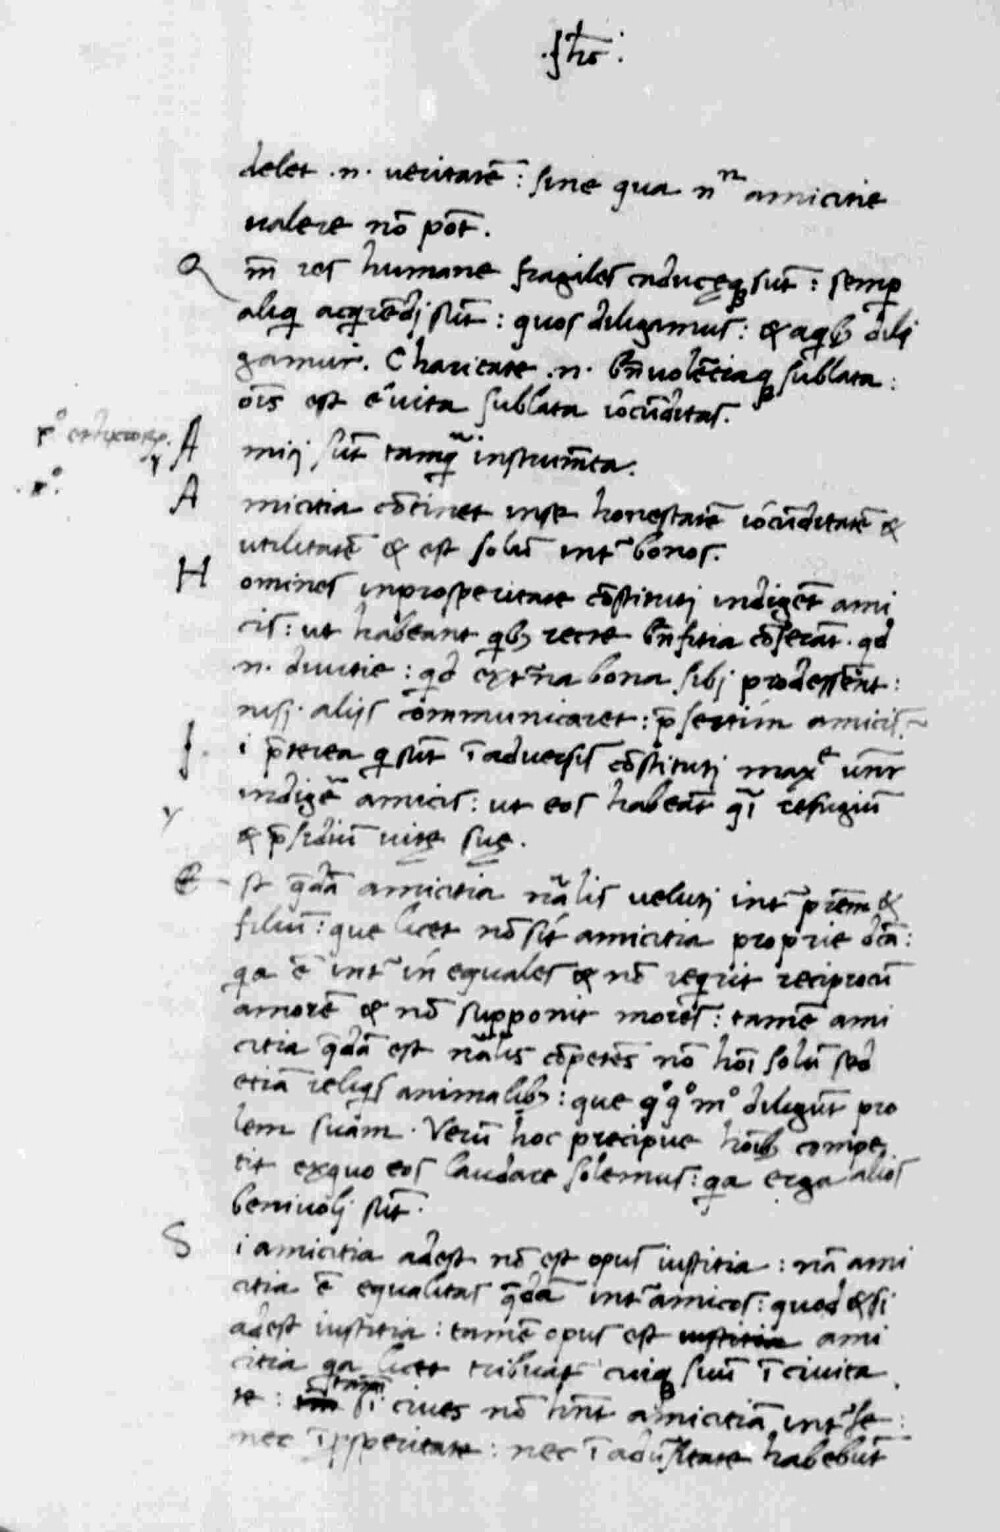 delet .n. ueritatē : sine qua nn amicitie
ualere nō pōt.
Q m̄ res humane fragiles caduceq; sūt : semp
aliq acqrēdj sūt : quos diligamus : & aqb; dili
gamur. Charitate .n. bn̄uolētiaq; sublata :
oīs est ē uita sublata iocūditas.
A micj sūt tamq̄ instrum̄ta.
A micitia cōtinet inse honestatē iocūditatē &
utilitatē & est solū int bonos.
H omines inprosperitate cōstitutj indigēt ami
cis : ut habeant qb; recte bn̄fitia cōferāt. qd
n. diuitie : qdext̄na bona sibj prodessent :
nisj. alijs communicaret : p̄sertim amicis.
I i p̄terea q sūt ī aduersis cōstitutj maxe
indigē amicis : ut eos habeāt q̄ī refugiū
& p̄sidiū uite sue.
E st q̄dā amicitia nālis ueluti int prēm &
filiū : que licet nō sit amicitia proprie dcā :
qa ē int inequales & nō reqrit reciprocū
amorē & nō supponit mores : tamē ami
citia q̄dā est nālis cōpetēs nō hoī solū sed
etiā reliqs animalib; : que qoqo mo diligūt pro
lem suam. Verū hoc precipue hoīb; compe
tit exquo eos laudare solemus : qa erga alios
beniuolj sūt.
S i amicitia adest nō est opus iustitia : nā ami
citia ē equalitas q̄dā int amicos : quod & si
adest iustitia : tamē opus est iustitia ami
citia qa licet tribuat cuiq; suū ī ciuita
te : tamen si ciues nō hn̄t amicitiā int se :
nec ī pspleritate : nec ī adūsitate habebūt